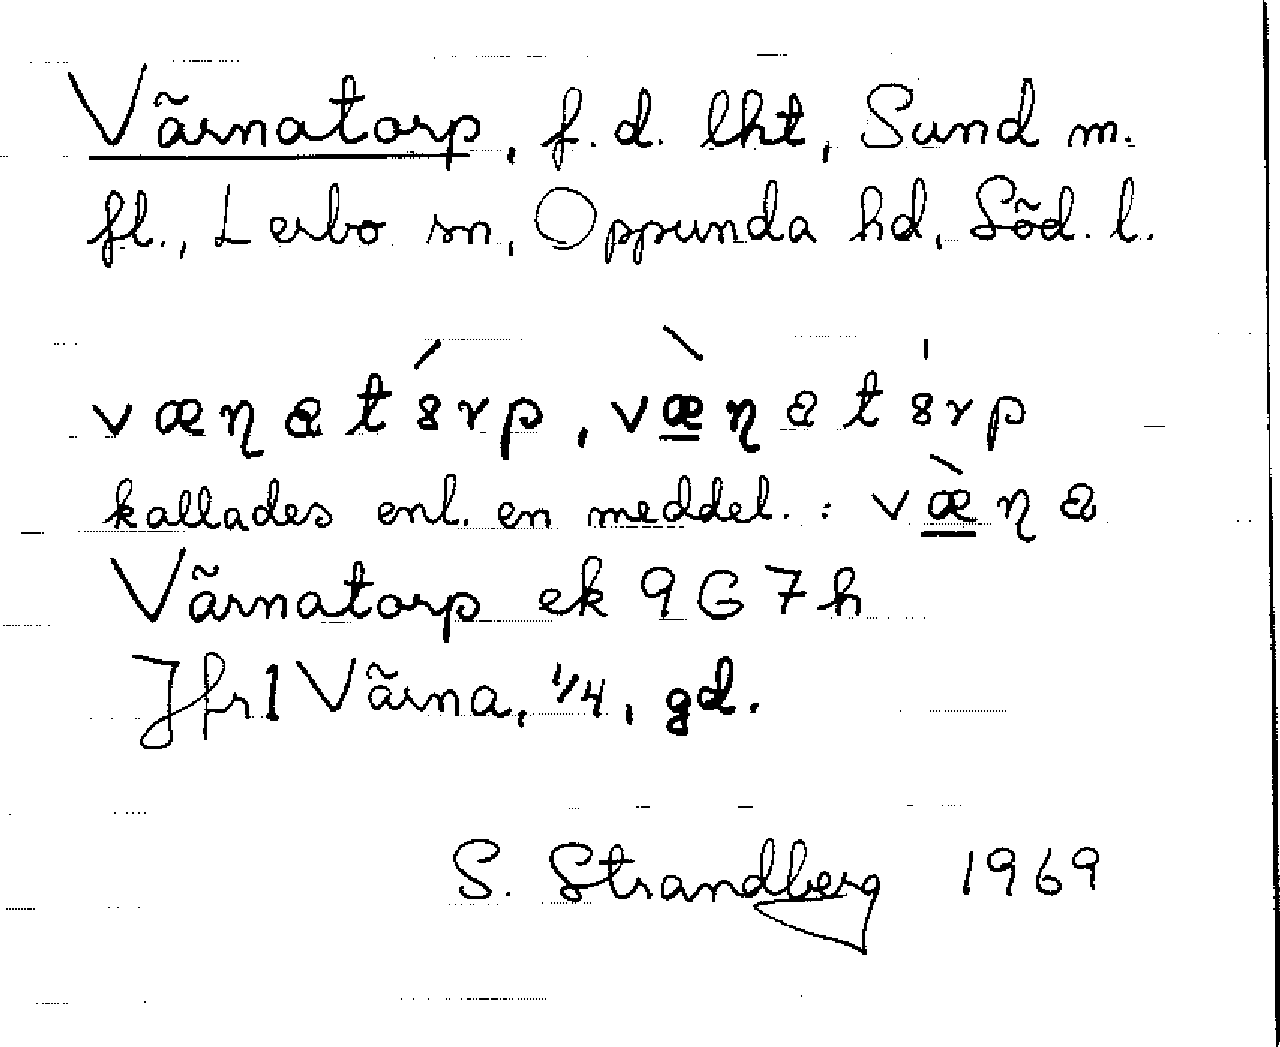 Värnatorp, f.d. lht, Sund m.
fl., Lerbo sn, Oppunda hd, Söd. l.
væɳatȣ́rp, væ̀ɳatȣ̍rp
kallades enl. en meddel. : væ̀ɳa
Värnatorp ek 9G7h
Jfr 1 Värna, 1/4, gd.
S. Strandberg 1969